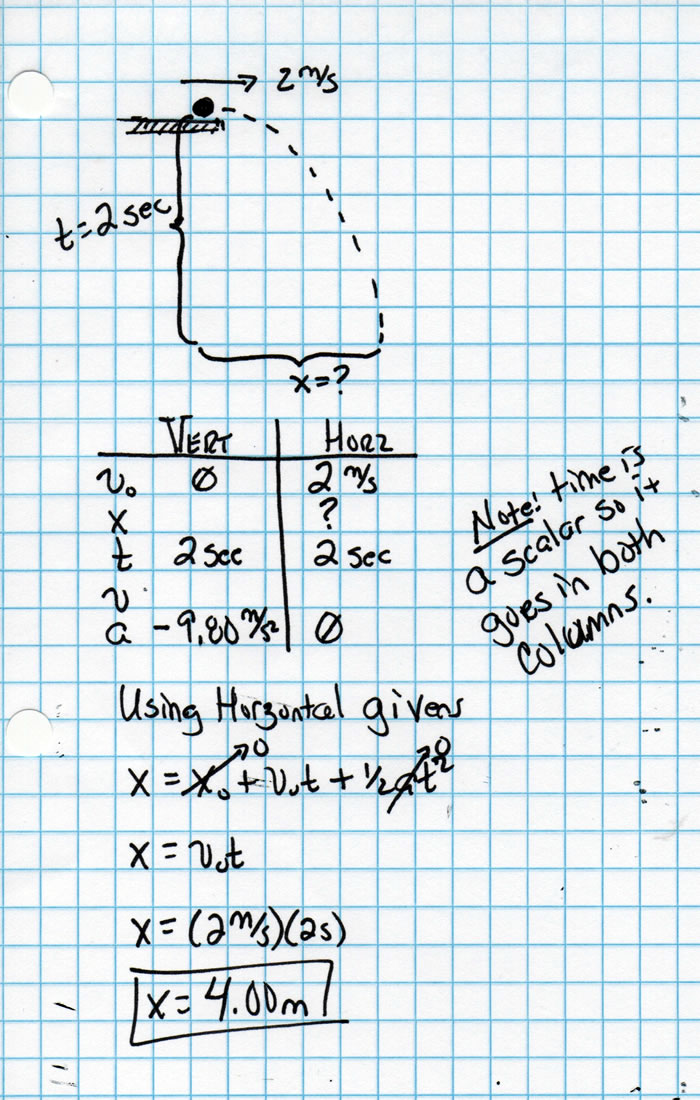 2 m/s
t = 2 sec
x = ?
VERT HORZ
v₀ Ø 2 m/s
x ?
t 2 sec 2 sec
v
a -9.80 m/s² Ø
Note! time is
a scalar so it
goes in both
columns.
Using Horzontal givens
x = x₀ + v₀t + 1/2 at²
0 0
x = v₀t
x = (2 m/s)(2s)
x = 4.00m